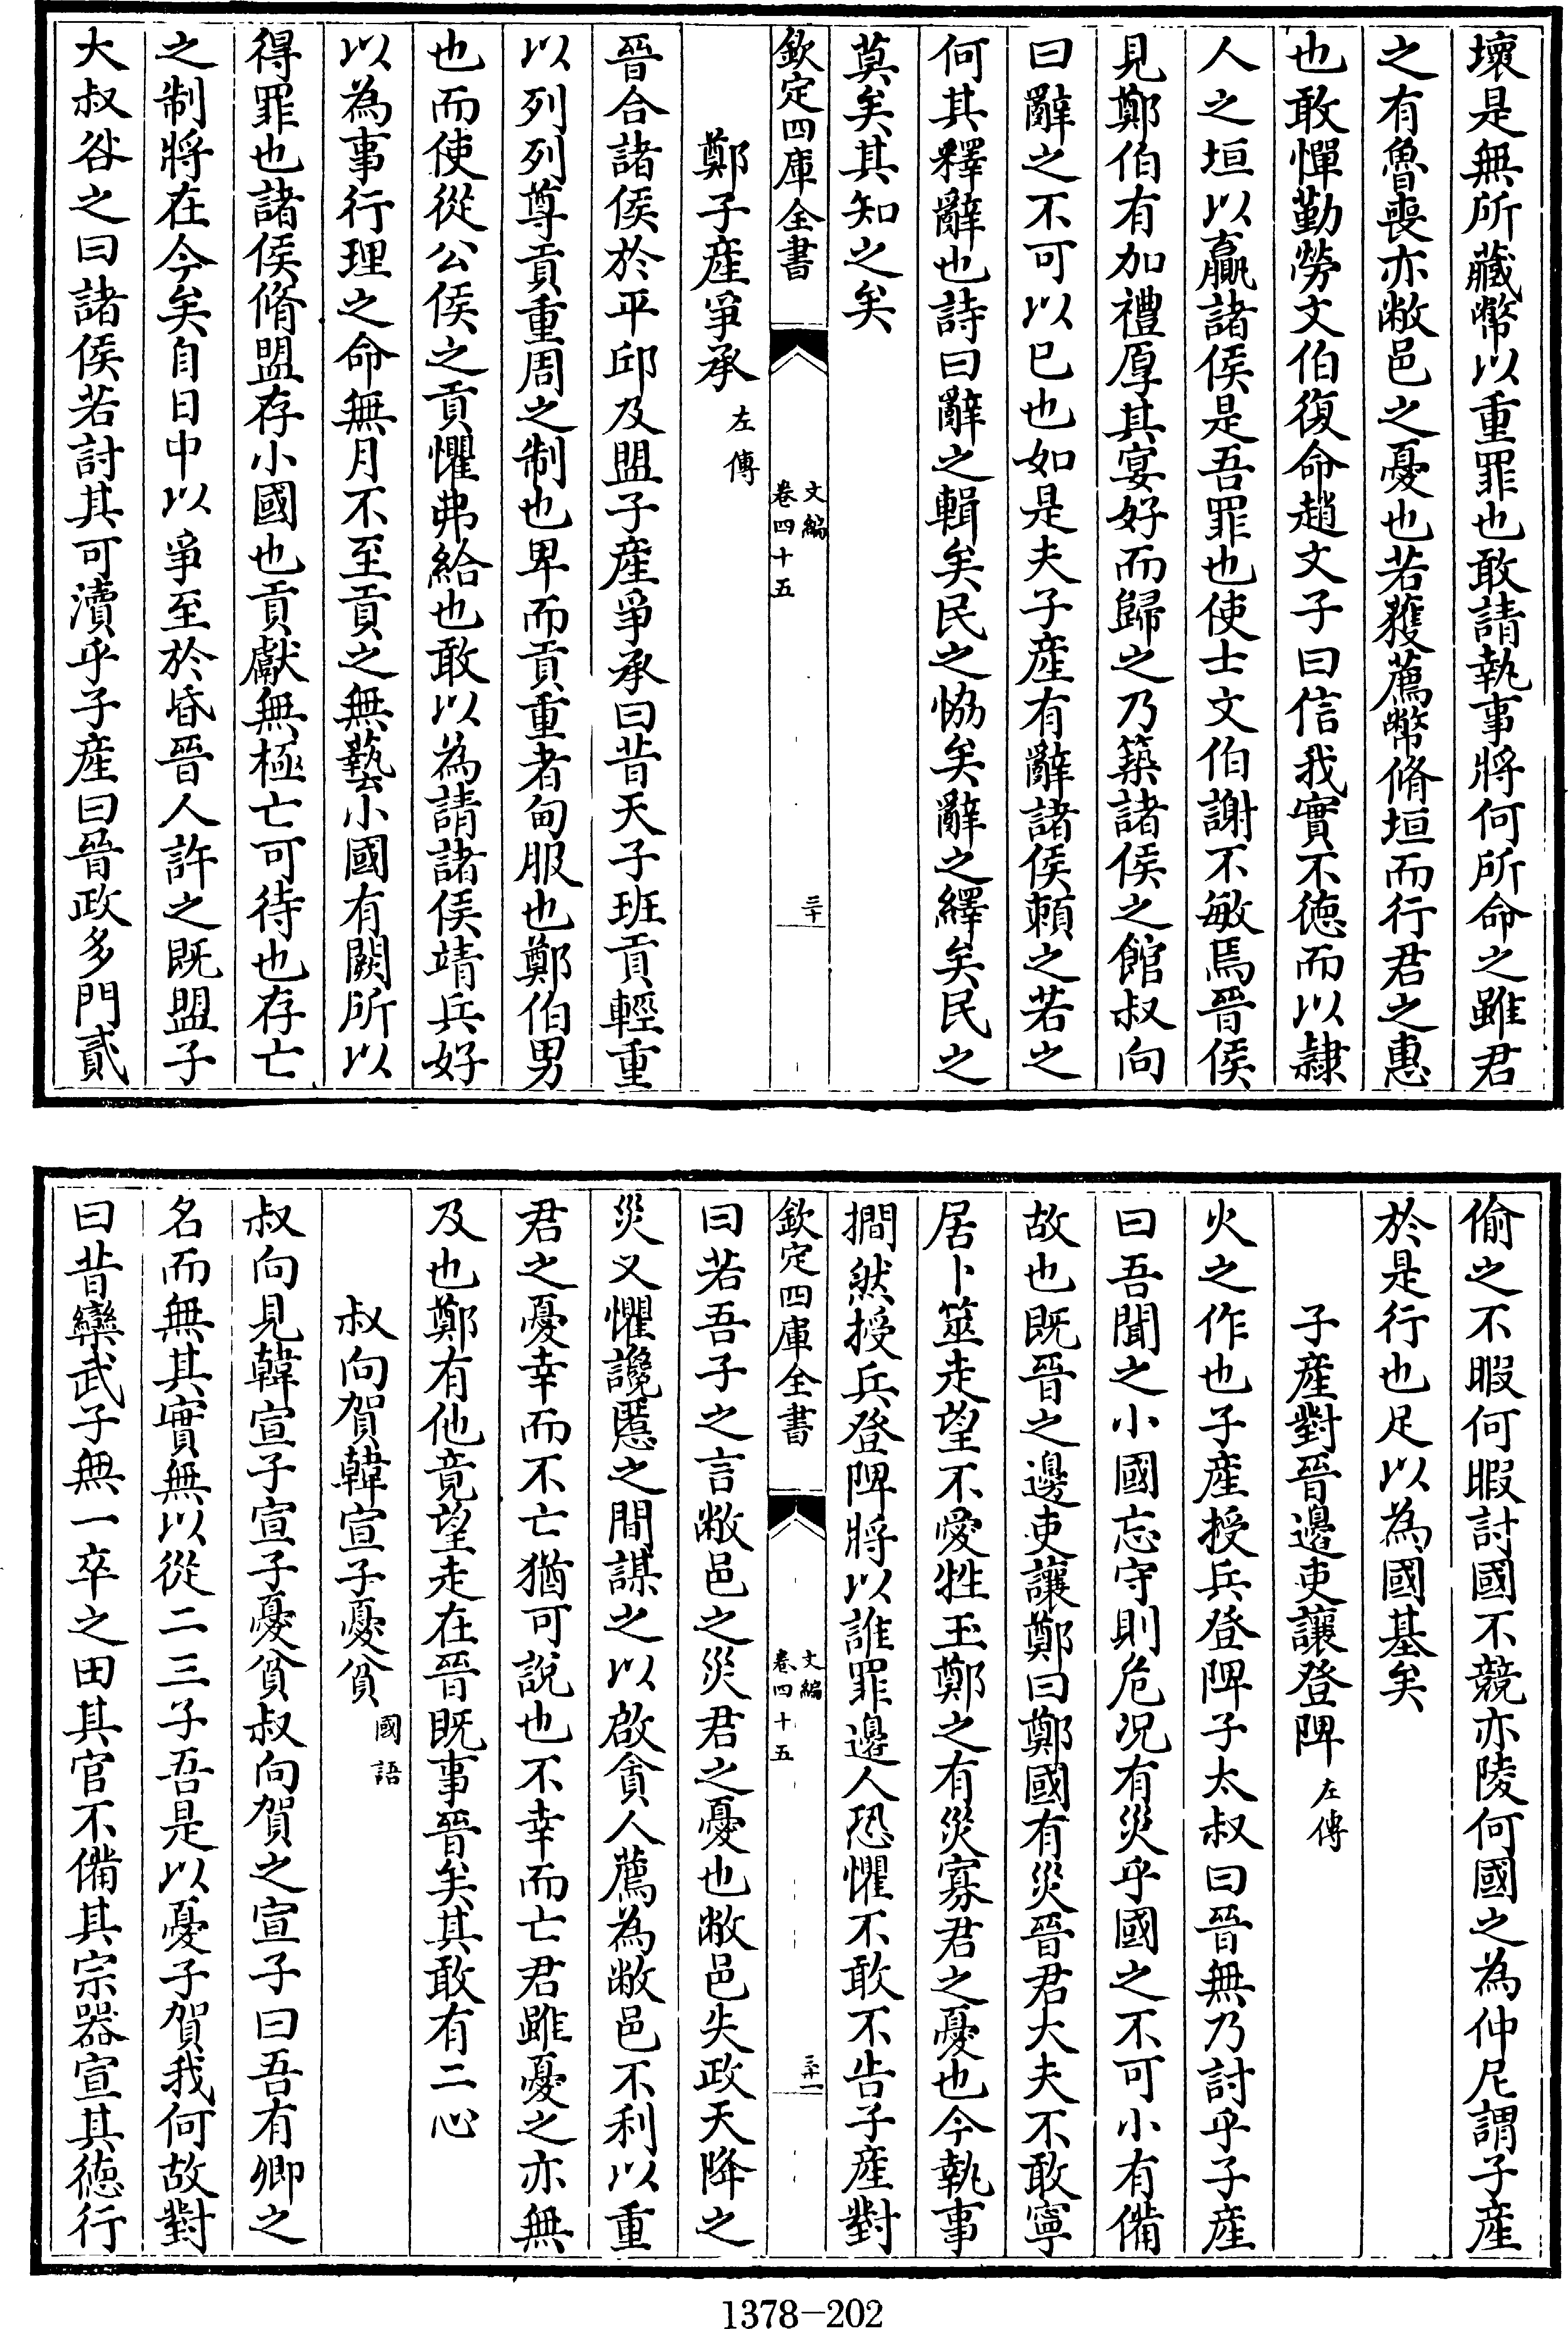 壞是無所藏幣以重罪也敢請執事將何所命之雖君
之有魯喪亦敝邑之憂也若獲薦幣脩垣而行君之惠
也敢憚勤勞文伯復命趙文子曰信我實不徳而以隷
人之垣以贏諸侯是吾罪也使士文伯謝不敏焉晉侯
見鄭伯有加禮厚其宴好而歸之乃築諸侯之館叔向
曰辭之不可以已也如是夫子産有辭諸侯頼之若之
何其釋辭也詩曰辭之輯矣民之恊矣辭之繹矣民之
莫矣其知之矣
欽定四庫全書
文編
卷四十五
三十
鄭子産爭承 左傳
晉合諸侯於平邱及盟子産爭承曰昔天子班貢輕重
以列列尊貢重周之制也卑而貢重者甸服也鄭伯男
也而使從公侯之貢懼弗給也敢以為請諸侯靖兵好
以為事行理之命無月不至貢之無藝小國有闕所以
得罪也諸侯脩盟存小國也貢獻無極亡可待也存亡
之制將在今矣自日中以爭至於昏晉人許之既盟子
大叔咎之曰諸侯若討其可瀆乎子産曰晉政多門貳
偷之不暇何暇討國不競亦陵何國之為仲尼謂子産
於是行也足以為國基矣
子産對晉邊吏讓登陴 左傳
火之作也子産授兵登陴子太叔曰晉無乃討乎子産
曰吾聞之小國忘守則危况有災乎國之不可小有備
故也既晉之邊吏讓鄭曰鄭國有災晉君大夫不敢寧
居卜筮走望不愛牲玉鄭之有災寡君之憂也今執事
撊然授兵登陴將以誰罪邊人恐懼不敢不告子産對
欽定四庫全書
文編
卷四十五
三十一
曰若吾子之言敝邑之災君之憂也敝邑失政天降之
災又懼讒慝之間謀之以啟貪人薦為敝邑不利以重
君之憂幸而不亡猶可說也不幸而亡君雖憂之亦無
及也鄭有他竟望走在晉既事晉矣其敢有二心
叔向賀韓宣子憂貧 國語
叔向見韓宣子宣子憂貧叔向賀之宣子曰吾有卿之
名而無其實無以從二三子吾是以憂子賀我何故對
曰昔欒武子無一卒之田其官不備其宗器宣其徳行
1378-202